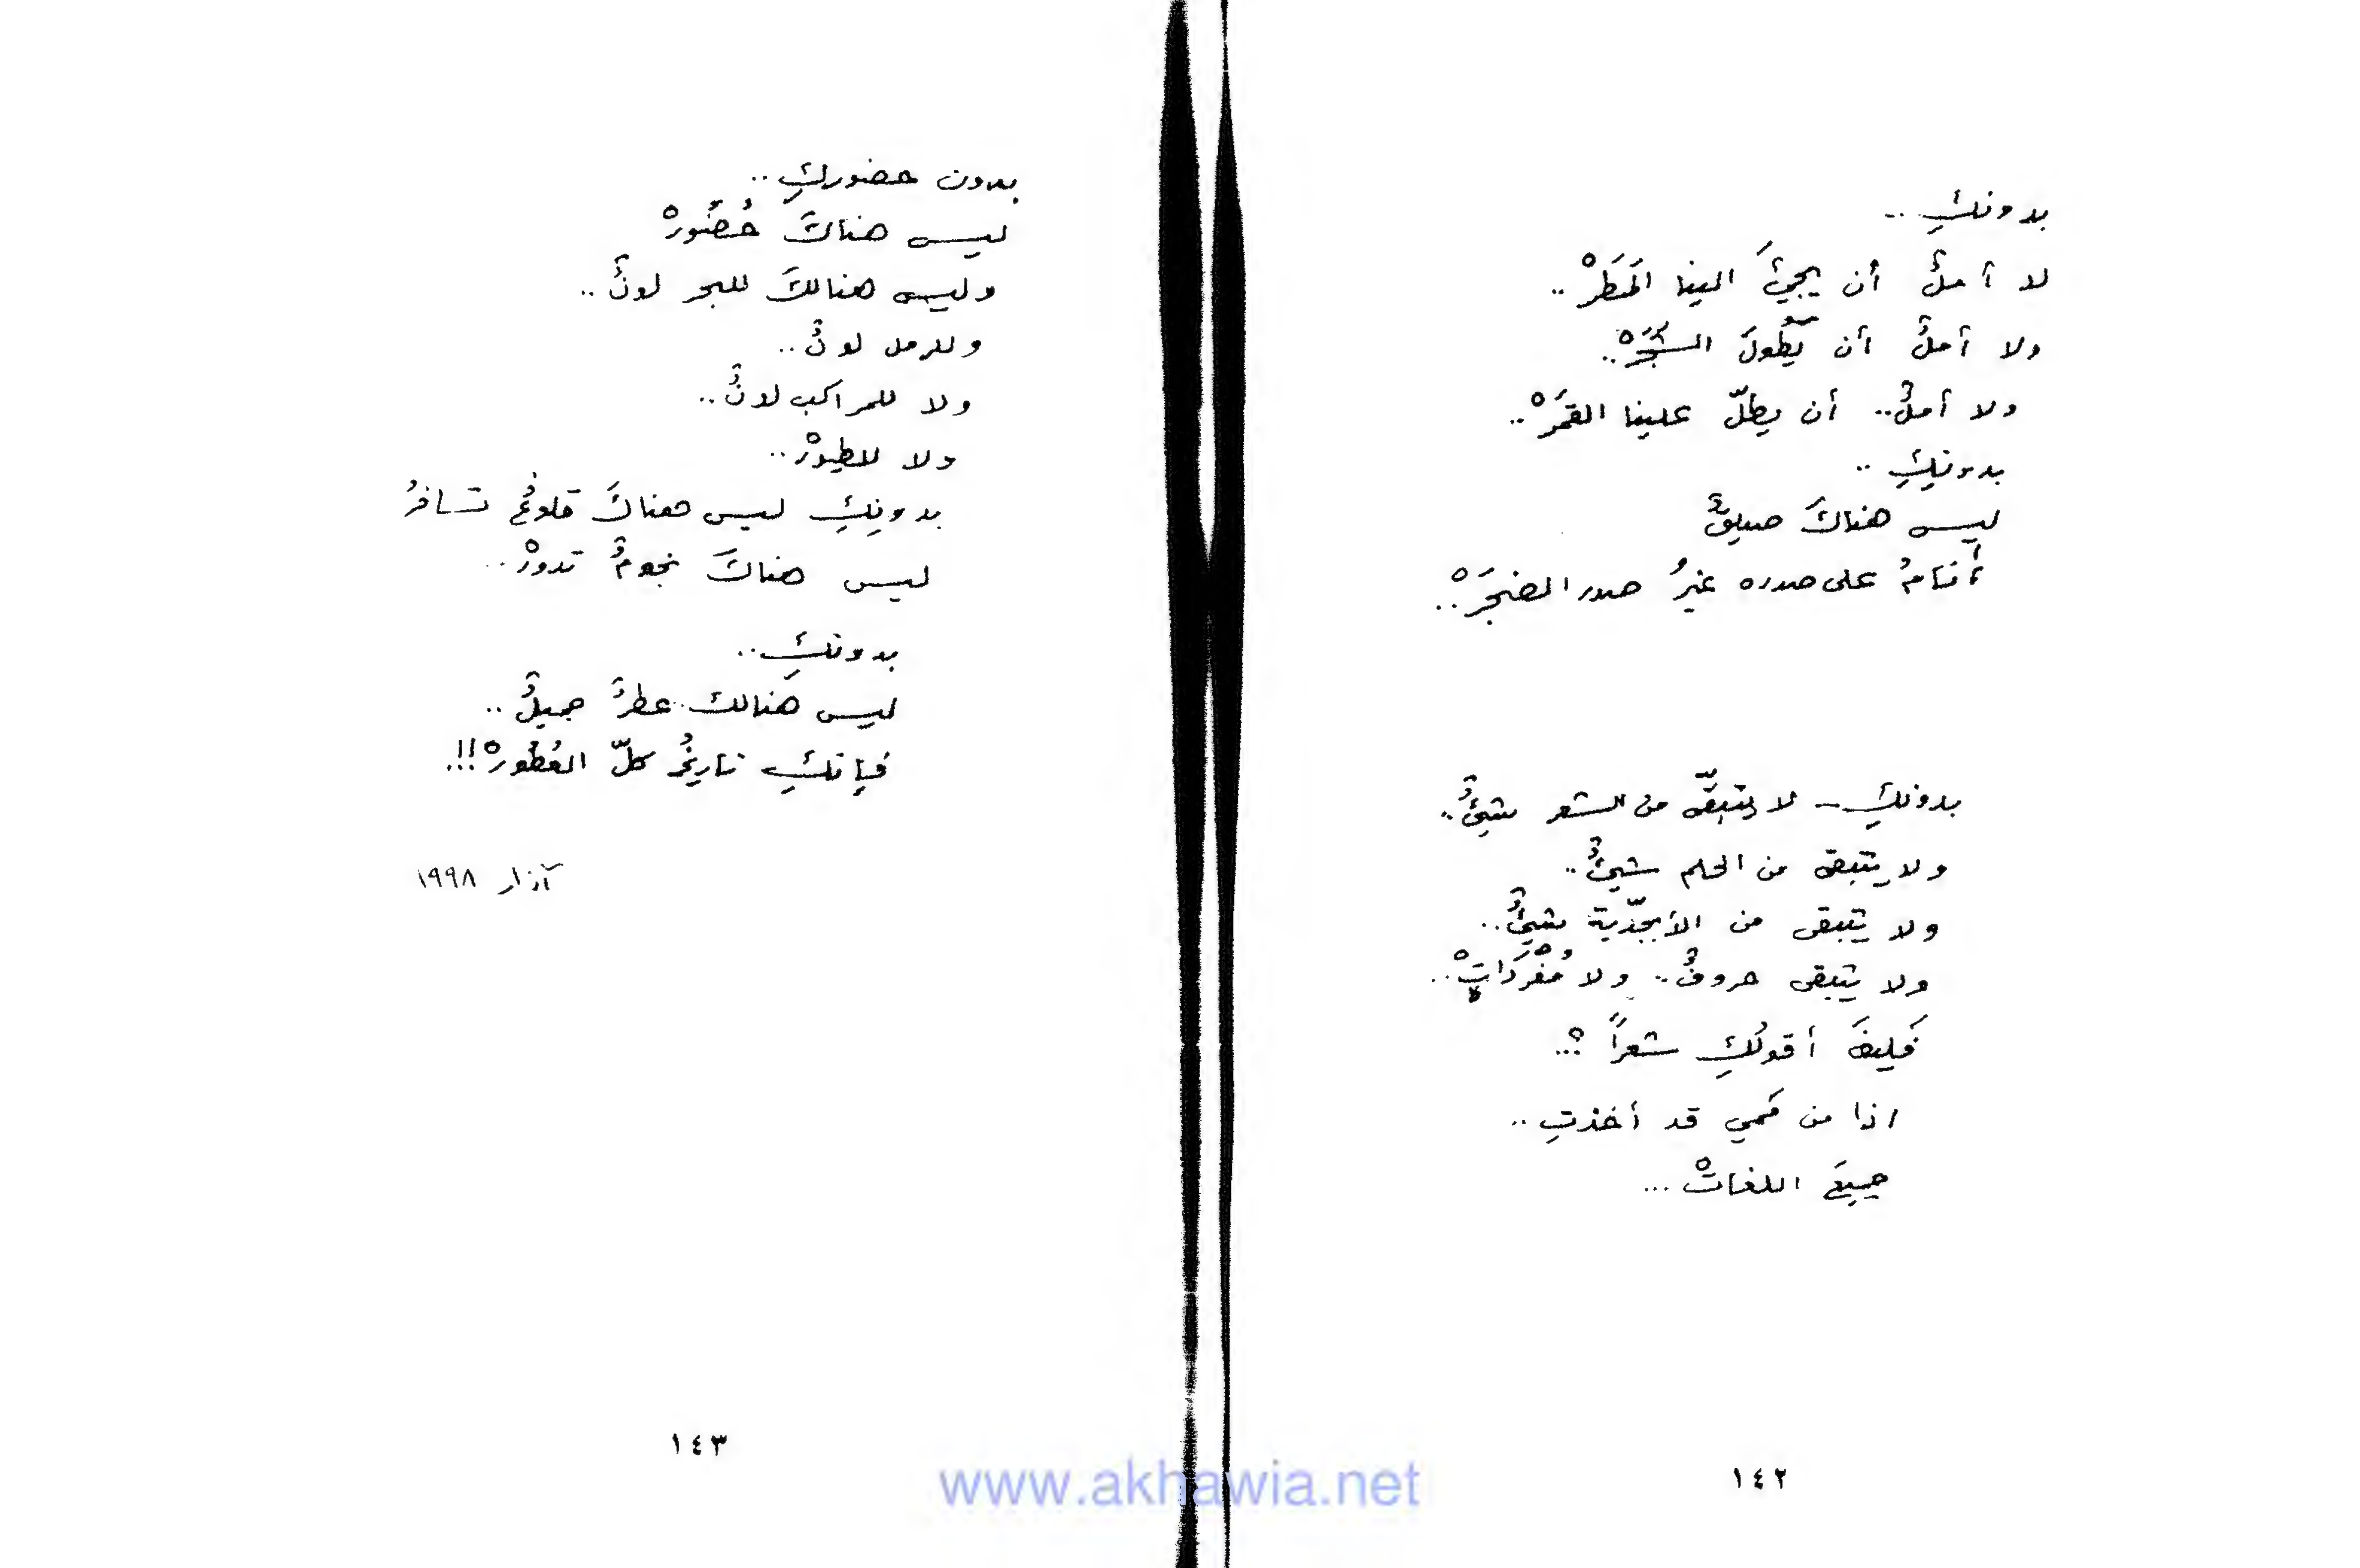 بدونكِ ..
لا أملٌ أن يجيئَ الينا المَطَرْ ..
ولا أملٌ أن يَطُولَ الشَجَرْ ..
ولا أملٌ .. أن يطلّ علينا القمَرْ ..
بدونكِ ..
ليس هناكَ صديقٌ
أنامُ على صدره غيرُ صدر الضجَرْ ..
بدونكِ .. لا يتبقّى من الشعر شيئٌ ..
ولا يتبقى من الحلم شيئٌ ..
ولا يتبقى من الأبجديّة شيئٌ ..
ولا يتبقى حروفٌ .. ولا مُفْرَدَاتْ ..
فكيفَ أقولُكِ شعراً ؟ ..
اذا من فَمي قد أخذتِ ..
جميعَ اللغاتْ ...
١٤٢
بدون حضوركِ ..
ليس هناكَ حُضُورْ
وليس هنالكَ للبحر لونٌ ..
وللرمل لونٌ ..
ولا للمراكب لونٌ ..
ولا للطيورْ ..
بدونِكِ ليس هناكَ قلوعٌ تسافرُ
ليس هناكَ نجومٌ تدورْ ..
بدونكِ ..
ليس هَنالك عطرٌ جميلٌ ..
فإنكِ تاريخُ كلّ العُطُورْ !!!
آذار ١٩٩٨
١٤٣
www.akhawia.net